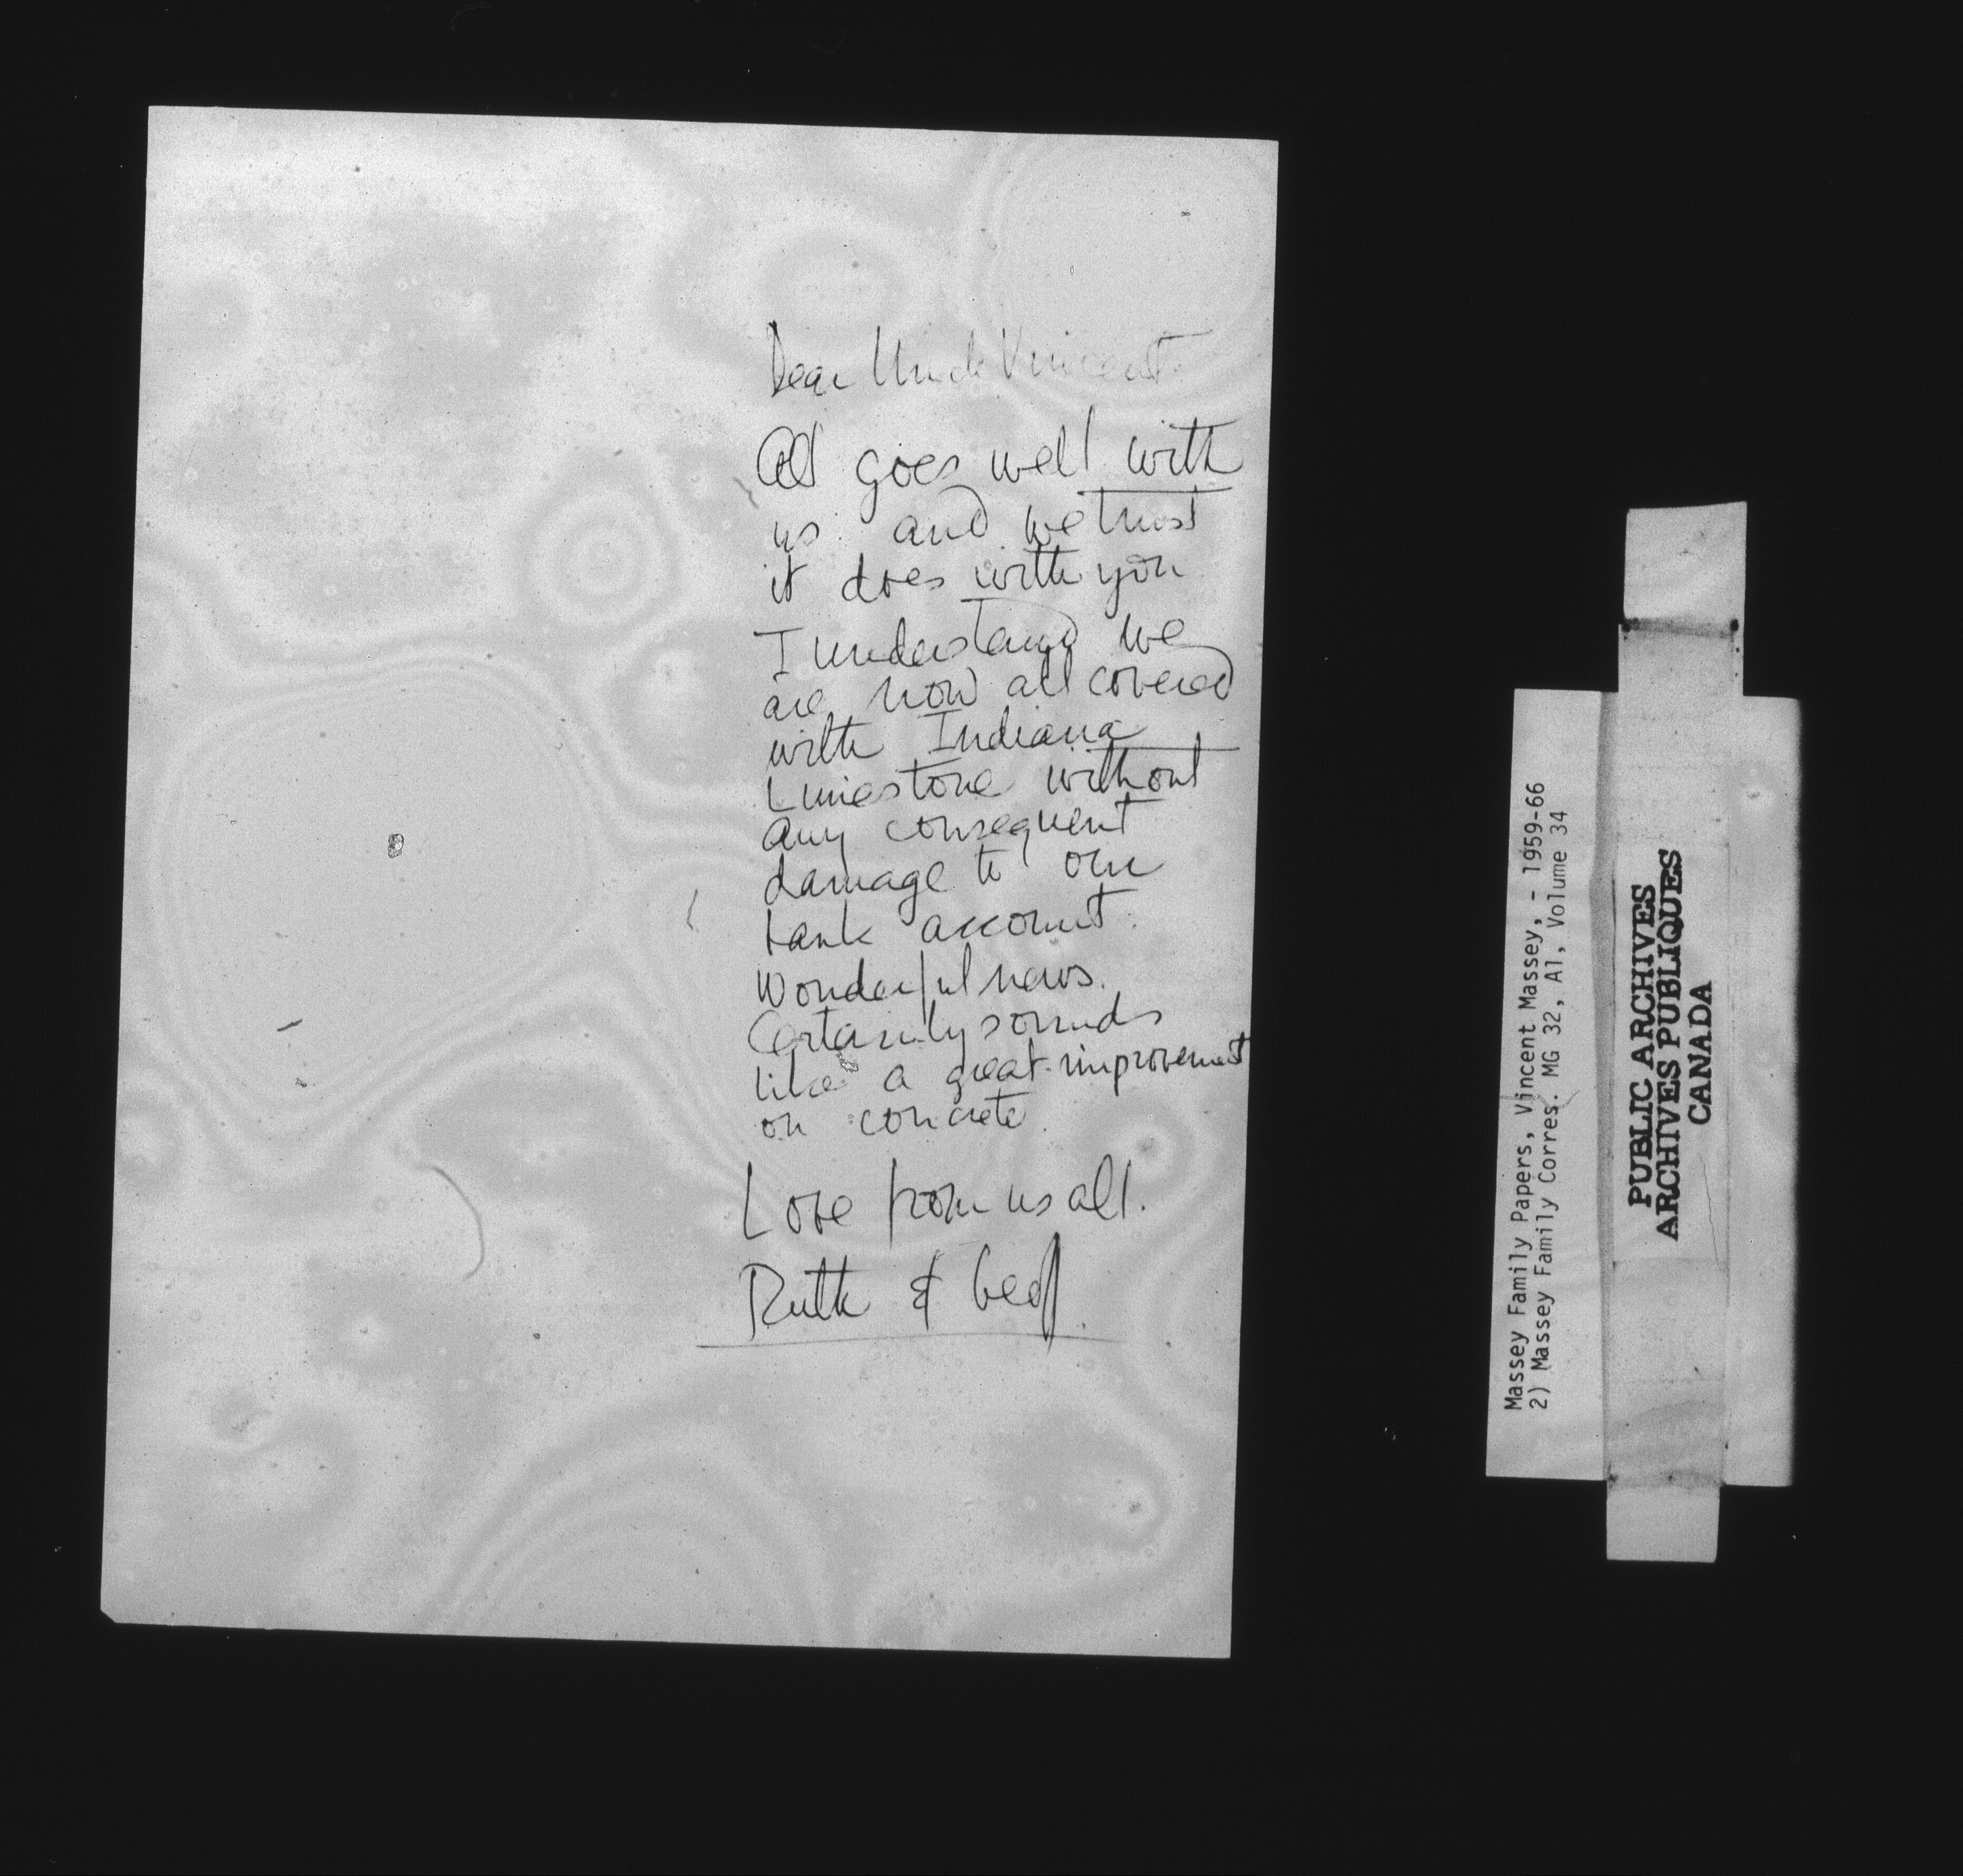 Dear Uncle Vincent.
All goes well with
us and we trust
it does with you
I understand we
are now all covered
with Indiana
Limestone without
any consequent
damage to our
bank account.
Wonderful news.
Certainly sounds
like a great improvement
on concrete.
Love from us all.
Ruth & Geoff.
Massey Family Papers, Vincent Massey, - 1959-66
2) Massey Family Corres. MG 32, A1, Volume 34
PUBLIC ARCHIVES
ARCHIVES PUBLIQUES
CANADA